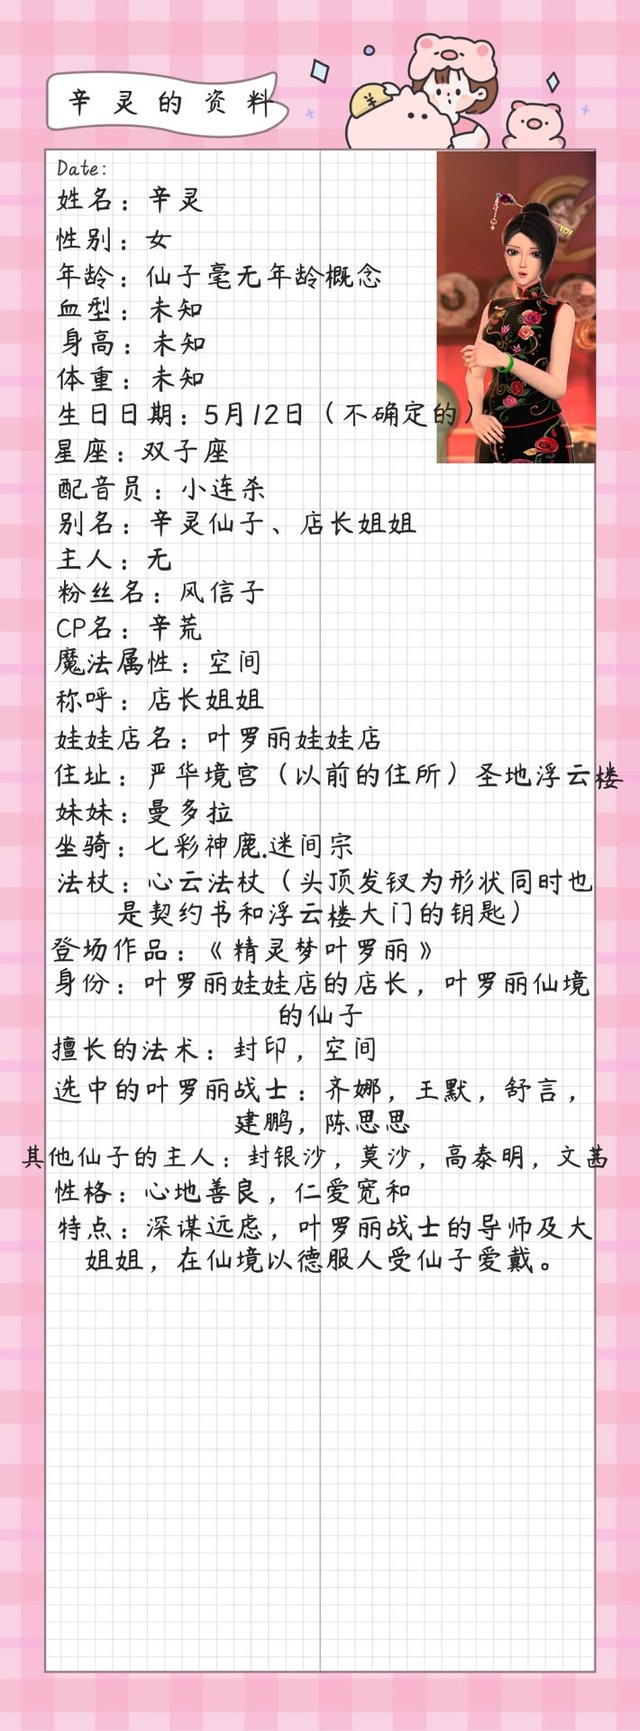 辛灵的资料
Date:
姓名：辛灵
性别：女
年龄：仙子毫无年龄概念
血型：未知
身高：未知
体重：未知
生日日期：5月12日（不确定的）
星座：双子座
配音员：小连杀
别名：辛灵仙子、店长姐姐
主人：无
粉丝名：风信子
CP名：辛荒
魔法属性：空间
称呼：店长姐姐
娃娃店名：叶罗丽娃娃店
住址：严华境宫（以前的住所）圣地浮云楼
妹妹：曼多拉
坐骑：七彩神鹿.迷间宗
法杖：心云法杖（头顶发钗为形状同时也
是契约书和浮云楼大门的钥匙）
登场作品：《精灵梦叶罗丽》
身份：叶罗丽娃娃店的店长，叶罗丽仙境
的仙子
擅长的法术：封印，空间
选中的叶罗丽战士：齐娜，王默，舒言，
建鹏，陈思思
其他仙子的主人：封银沙，莫沙，高泰明，文茜
性格：心地善良，仁爱宽和
特点：深谋远虑，叶罗丽战士的导师及大
姐姐，在仙境以德服人受仙子爱戴。